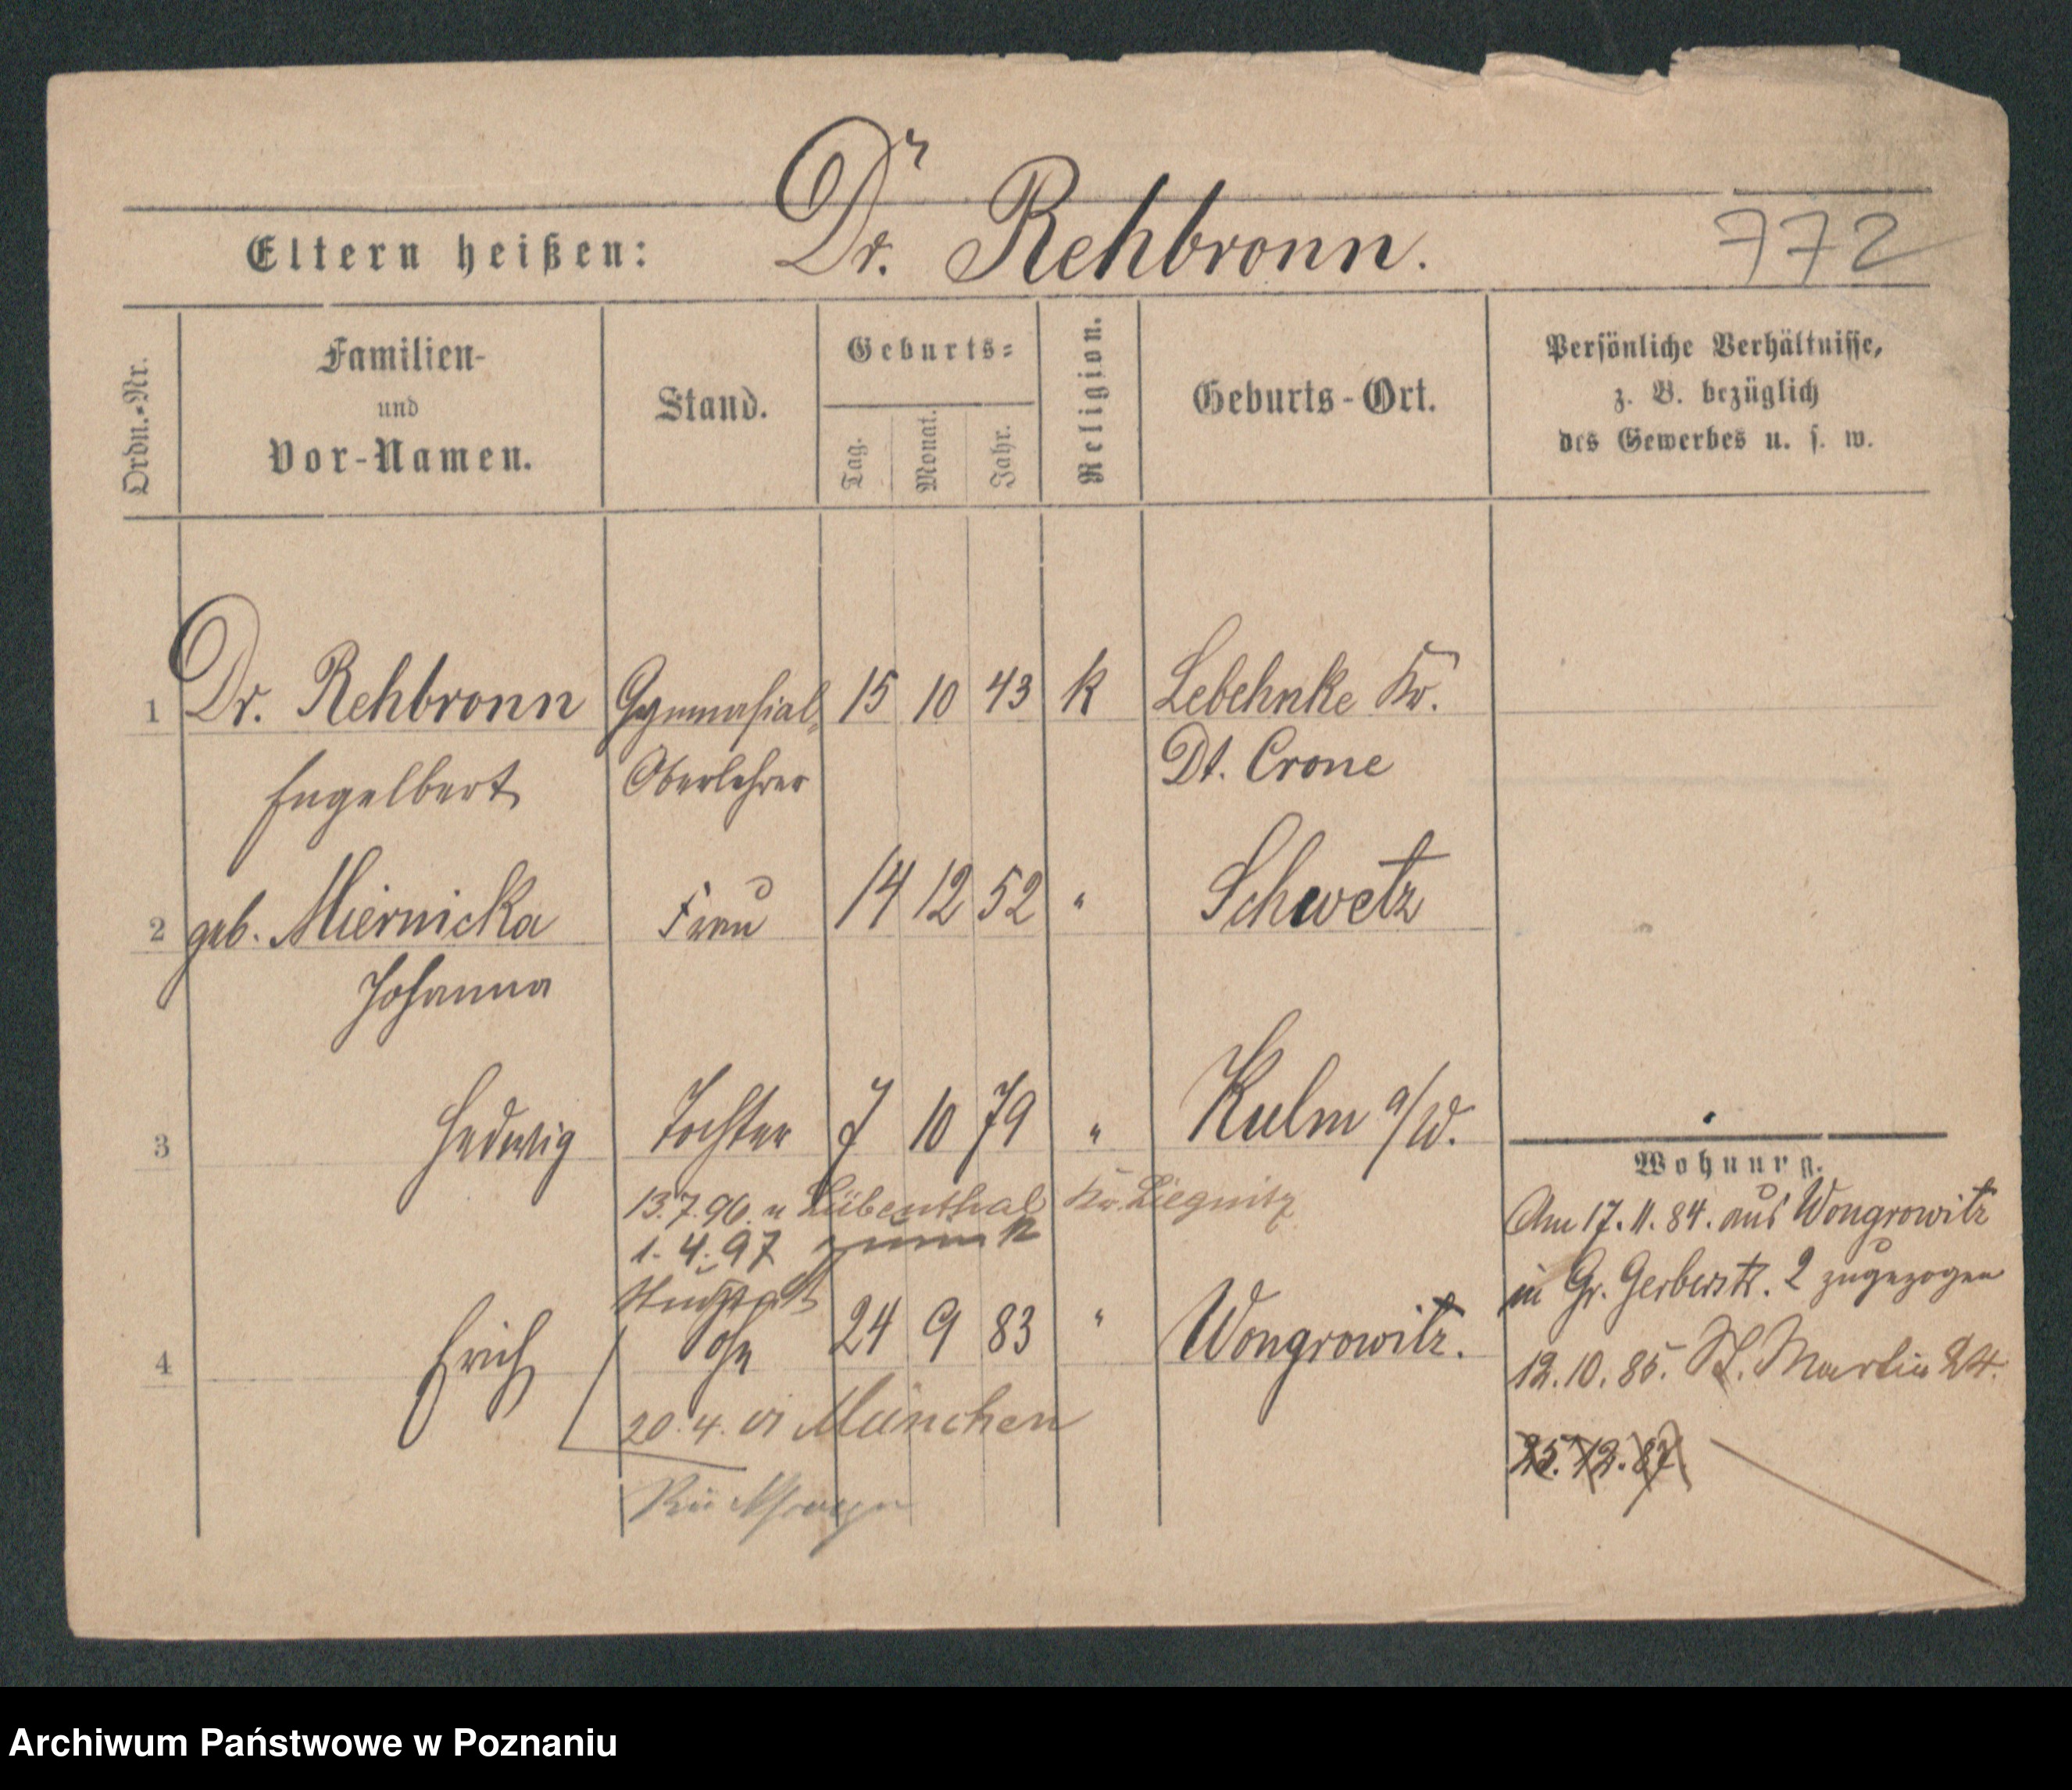 Dr. Rehbronn.
772
Eltern heißen:
Ordn.=Nr.
Familien-
und
Vor-Namen.
Stand.
Geburts=
Tag.
Monat.
Jahr.
Religion.
Geburts-Ort.
Persönliche Verhältnisse,
z. B. bezüglich
des Gewerbes u. s. w.
1 Dr. Rehbronn Gymnasial= 15 10 43 k Lebehnke Kr.
Engelbert Oberlehrer Dt. Crone
2 geb. Miernicka Frau 14 12 52 " Schwetz
Johanna
3 Hedwig Tochter 7 10 79 " Kulm a/W.
13.7.96. n Lübenthal Kr. Liegnitz
1.4.97 zurück
4 Erich Sohn 24 9 83 " Wongrowitz.
20.4.01 München
Rückfrage
Wohnung.
Am 17.11.84. aus Wongrowitz
in Gr. Gerberstr. 2 zugezogen
12.10.85. St. Martin 24.
25.12.87
Archiwum Państwowe w Poznaniu